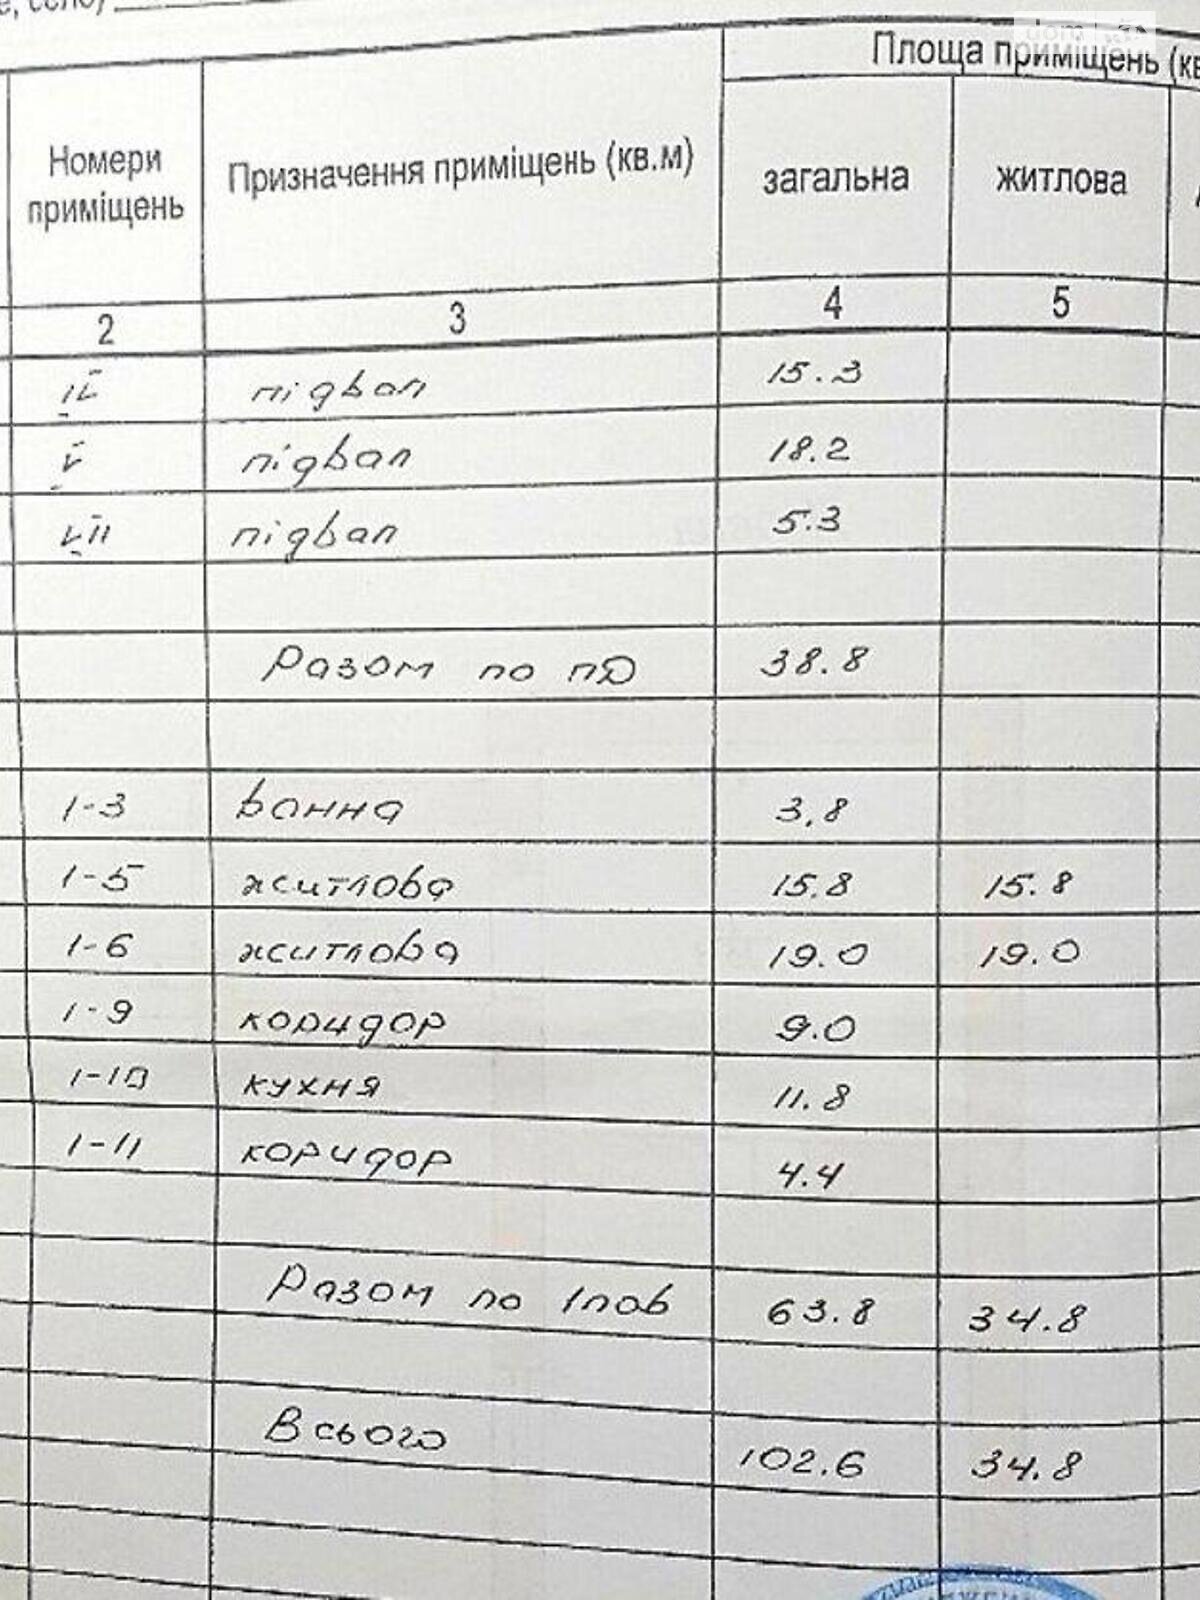 Площа приміщень (кв
Номери приміщень Призначення приміщень (кв.м) загальна житлова
2 3 4 5
IV підвал 15.3
V підвал 18.2
VII підвал 5.3
Разом по пД 38.8
1-3 ванна 3,8
1-5 житлова 15.8 15.8
1-6 житлова 19.0 19.0
1-9 коридор 9.0
1-10 кухня 11.8
1-11 коридор 4.4
Разом по 1пов 63.8 34.8
Всього 102.6 34.8